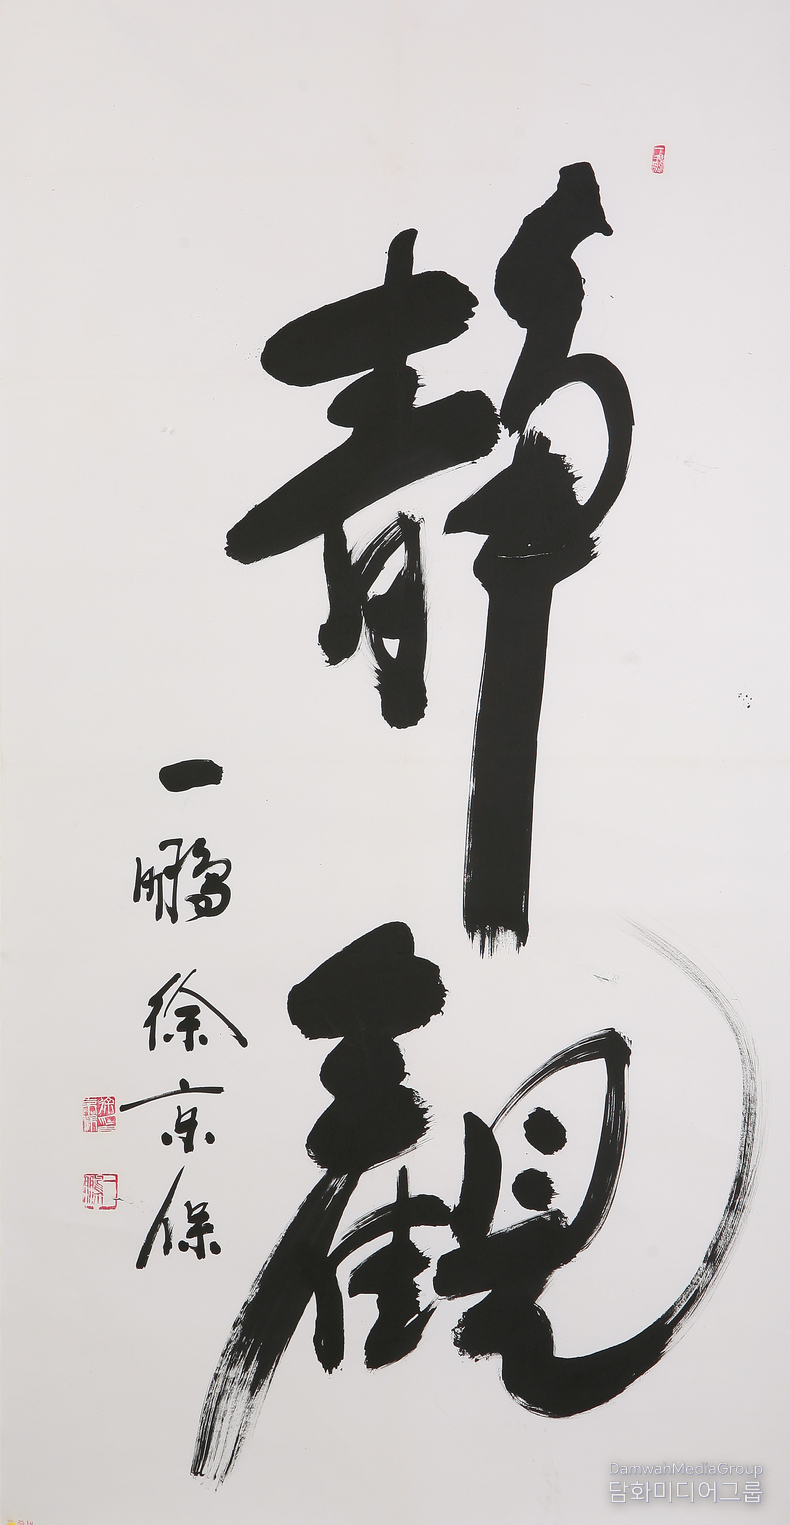 靜觀
一鵬 徐京保
DamwahMediaGroup
담화미디어그룹